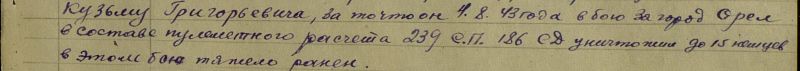 Кузьму Григорьевича, за то что он 4.8.43 года в бою за город Орел
в составе пулеметного расчета 239 С.П. 186 СД уничтожил до 15 немцев
в этом бою тяжело ранен.